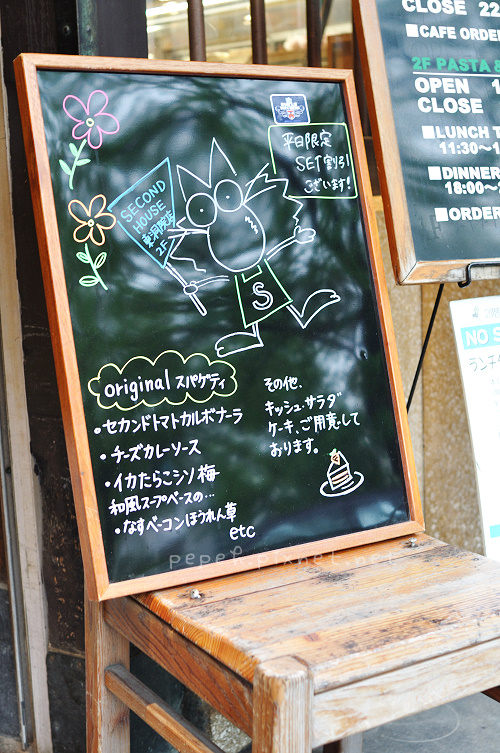 平日限定
SET割引
ございます!
SECOND
HOUSE
東洞院店
2F
S
original スパゲティ
・セカンドトマトカルボナーラ
・チーズカレーソース
・イカたらこシソ梅
和風スープベースの…
・なすベーコンほうれん草
etc
その他、
キッシュ・サラダ
ケーキ、ご用意して
おります。
CLOSE 22
■CAFE ORDER
2F PASTA &
OPEN 1
CLOSE
■LUNCH T
11:30~1
■DINNER
18:00~
■ORDER
NO S
ランチ
pepek.pixnet.net